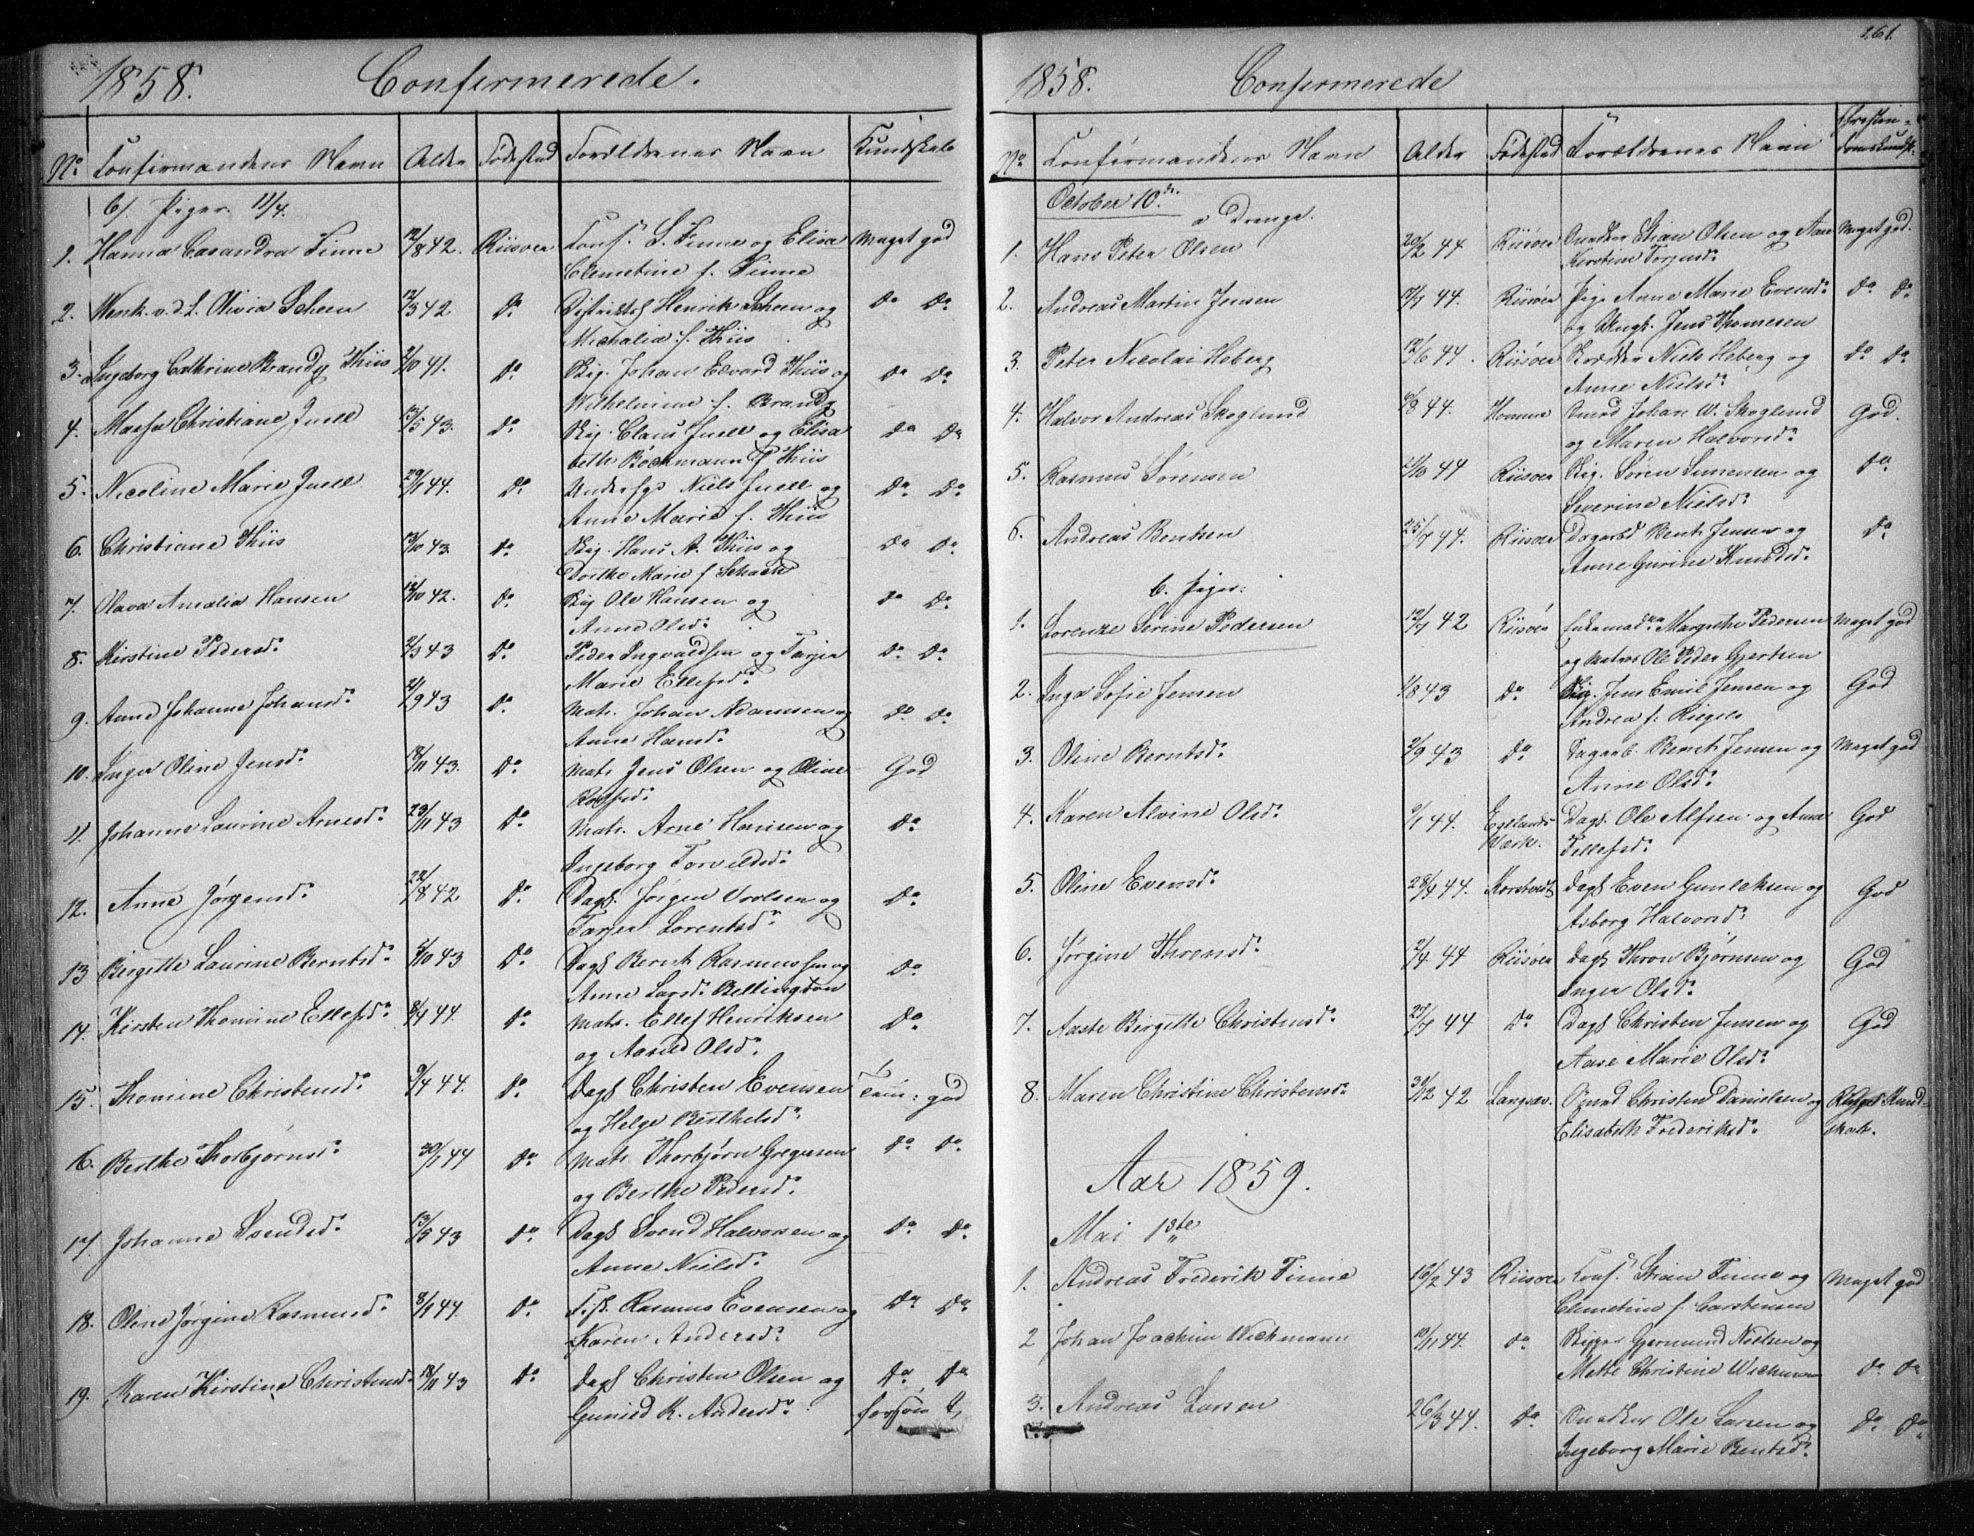 1858. Confirmerede.
No Confirmandens Navn Alder Fødested Forældrenes Navn Kundskab
b/. Piger. 11/4.
1. Hanna Casandra Finne 12/8 42. Riisøer Cons. S. Finne og Elisa Meget god
Clemetine f. Finne
2. Wenk. v. d. L. Olivia Scheen 12/3 42 do Henrik Scheen og do do
Michalia f. Thiis
3. Ingeborg Cathrine Brandt Thiis 2/10 41. do Johan Edvard Thiis og do do
Wilhelmine f. Brandt
4. Maasa Christiane Juell 13/5 43. do Claus Juell og Elisa do do
beth Bøckmann f. Thiis
5. Nicoline Marie Juell 29/1 44. do Niels Juell og do do
Anne Marie f. Thiis
6. Christiane Thiis 13/10 43 do Hans A. Thiis og do do
Dorthe Marie f. Schaed
7. Olava Amalia Hansen 12/10 42. do Ole Hansen og do do
Anne Olsd:
8. Kirstine Pedersd: 2/3 43 do Peder Ingvaldsen og Tarjer do do
Marie Ellefsd:
9. Anne Johanne Johansd: 21/9 43 do Matr. Johan Adamsen og do do
Anne Hansd:
10. Inger Oline Jensd: 13/11 43. do Matr. Jens Olsen og Oline God
11. Johanne Laurine Arnesd: 23/11 43 do Matr. Arne Hansen og do
Ingeborg Torvildsd:
12. Anne Jørgensd: 22/8 42 do Dags. Jørgen og do
Tarjer Lorentsd:
13 Birgitte Laurine Berntsd: 5/10 43 do Dags Bernt Rasmussen og do
Anne Larsd: Bellingdon
14. Kirsten Thomine Ellefsd: 8/4 44. do Matr. Ellef Henriksen do
og Aasild Olsd.
15. Thomine Christensd: 9/4 44. do Dags Christen Evensen Tem: god
og Helge Berthelsd:
16. Berthe Thorbjørnsd: 30/1 44 do Matr Thorbjørn Gregersen do do
og Berthe Pedersd.
17. Johanne Svendsd: 13/5 43 do Dags Svend Halvorsen og do do
Anne Nielsd:
18. Oline Jørgine Rasmusd: 8/1 44. do Rasmus Evensen og do do
Karen Andersd:
19. Karen Kirstine Christensd: 18/11 43 do Dags Christen Olsen og do do
Gunild K. Andersd:
261.
1858. Confirmerede
No Confirmandens Navn Alder Fødested Forældrenes Navn Christen-
domskundsk:
October 10de
a Drenge.
1. Hans Peter Olsen 20/2 44 Riisøer Stian Olsen og Ane Meget god.
Kirstine Torjusd:
2. Andreas Martin Jensen 17/1 44. Riisøer Pige Anne Marie Evensd: do do
og Ungk. Jens Thomesen
3. Peter Nicolai Heberg 12/6 44. Riisøer Niels Heberg og do do
Anne Nielsd:
4. Halvor Andreas Skoglund 6/8 44. Homme Johan W. Skoglund God.
og Maren Halvorsd:
5. Rasmus Sørensen 21/10 44 Riisøer Søren Simensen og do
Severine Nielsd:
6. Andreas Bentsen 25/7 44. Riisøer Dagarbd Bent Jensen og do
Anne Gurine Knudsd:
b. Piger:
1. Lorenze Serine Pedersen 12/7 42 Riisøer Margrethe Pedersen Meget god
og Matros Ole Peder Gjertsen
2. Inga Sofie Jensen 1/8 43 do Jens Emil Jensen og God
Andrea f: Riegels
3. Oline Berntsd: 2/9 43 do Dagarb. Bernt Jensen og Meget god
Anne Olsd:
4. Karen Alvine Olsd: 9/1 44. Egelands Dags. Ole Alfsen og Anne God
Værk. Tellefsd:
5. Oline Evensd: 28/3 44. Dags Even Gunleksen og God
Asborg Halvorsd:
6. Jørgine Thronsd: 2/4 44 Riisøer Dags Thron Bjørnsen og God
Inger Olsd:
7. Aaste Birgitte Christensd: 27/7 44 do Dags Christen Jensen og God
Aase Marie Olsd:
8. Maren Christine Christensd: 30/12 42 Langsæ. Christen Danielsen og Kund-
Elisabeth Frederiksd: skab.
Aar 1859.
Mai 1ste
1. Andreas Frederik Finne 16/2 43 Riisøer Cons. Stian Finne og Meget god
Clemetine f. Carstensen
2 Johan Joachim Wichmann 10/11 44. do Skipper Gjermund Nielsen og
Mette Christine Wichmann do do
3. Andreas Larsen 26/3 44. do Ole Larsen og do do
Ingeborg Marie Bentsd: